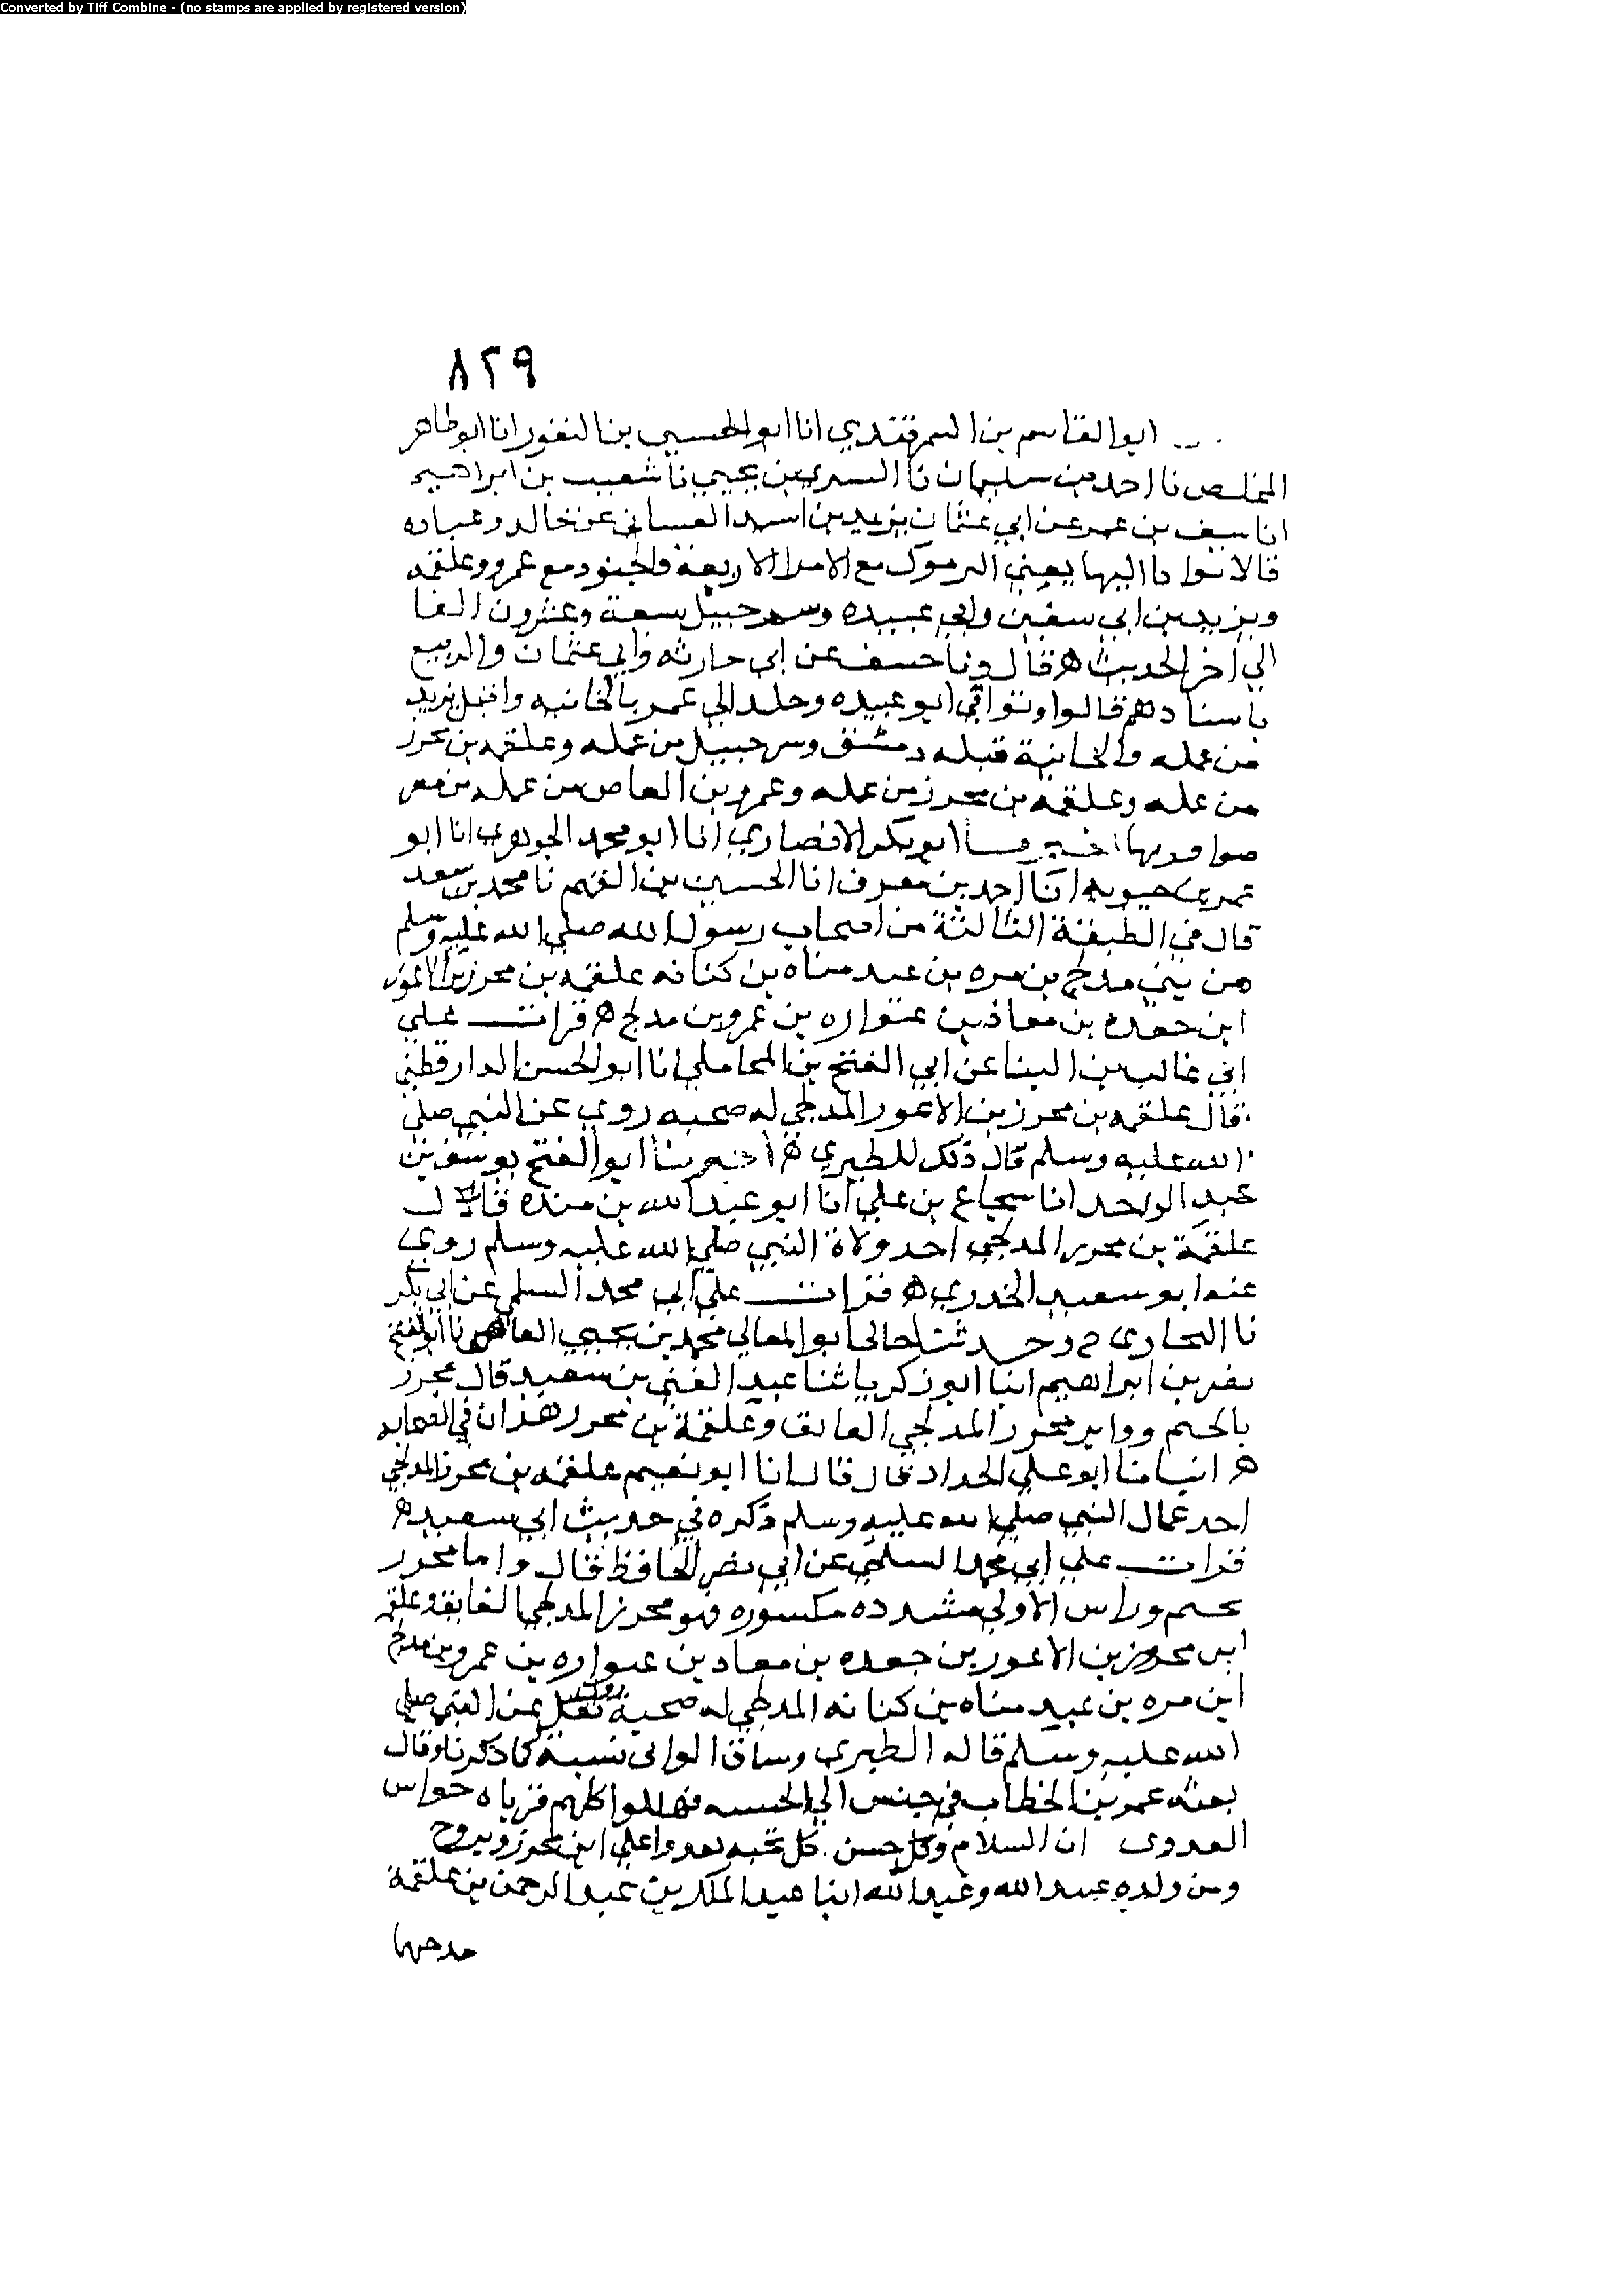 Converted by Tiff Combine - (no stamps are applied by registered version)
٨٢٩
ابو القاسم بن السمرقندي انا ابو الحسين بن النقور انا ابو طاهر
المخلص نا احمد بن سليمان نا السري بن يحيي نا شعيب بن ابراهيم
انا سيف بن عمر عن ابي عثمان يزيد بن اسيد الغساني عن خالد وعباده
قالا اليها يعني اليرموك مع الامرا الاربعة والجنود مع عمرو وعلقمه
ويزيد بن ابي سفين وابي عبيده وسرحبيل سبعة وعشرون الفا
الي اخر الحديث ه قال ونا سيف عن ابي حارثه وابي عثمان والربيع
باسنادهم قالوا وتوافي ابو عبيده وخلد الي عمر بالجابيه واقبل يزيد
من عمله والجابية قبله دمشق وسرحبيل من عمله وعلقمه بن محرز
من عمله وعلقمه بن محرز من عمله وعمرو بن العاص من عمله من مصر
اخبرنا ابو بكر الانصاري انا ابو محمد الجوهري انا ابو
عمر بن حيويه انا احمد بن معروف انا الحسين بن الفهم نا محمد بن سعد
قال في الطبقة الثالثة من اصحاب رسول الله صلي الله عليه وسلم
من بني مدلج بن مره بن عبد مناه بن كنانه علقمه بن محرز بن الاعور
ابن جعده بن معاذ بن عتواره بن عمرو بن مدلج ه قرات علي
ابي غالب بن البنا عن ابي الفتح بن المحاملي انا ابو الحسن الدارقطني
قال علقمه بن محرز بن الاعور المدلجي له صحبه روي عن النبي صلي
الله عليه وسلم قال ذلك للطبري ه اخبرنا ابو الفتح يوسف بن
عبد الواحد انا سجاع بن علي انا ابو عبد الله بن منده قال
علقمة بن محرز المدلجي احد ولاة النبي صلي الله عليه وسلم روي
عنه ابو سعيد الخدري ه قرات علي ابي محمد السلمي عن ابي بكر
نا البخاري ح وحدثنا خالي ابو المعالي محمد بن يحيي القاضي نا ابو الفتح
نصر بن ابراهيم انبا ابو زكريا ثنا عبد الغني بن سعيد قال محرز
بالجيم محرز المدلجي القايف وعلقمة بن محرز هذان في الصحابه
ه انبانا ابو علي الحداد قال قال انا ابو نعيم علقمه بن محرز المدلجي
احد عمال النبي صلي الله عليه وسلم ذكره في حديث ابي سعيد ه
قرات علي ابي محمد السلمي عن ابي نصر الحافظ قال واما محرز
بجيم وراس الاولي مشدده مكسوره فهو محرز المدلجي القايف وعلقمه
ابن محرز بن الاعور بن جعده بن معاد بن عتواره بن عمرو بن مدلج
ابن مره بن عبد مناه بن كنانه المدلجي له صحبة عن النبي صلي
الله عليه وسلم قاله الطبري وساق نسبه كما ذكرنا وقال
بعثه عمر بن الخطاب في جيش الي الحبسه فهلكوا كلهم فرثاه جواس
العدوي ان السلام وكل حسن كل تحيه تغدوا علي ابن محرز ويروح
ومن ولده عبد الله وعبيد الله ابنا عبد الملك بن عبد الرحمن بن علقمة
مدحهما